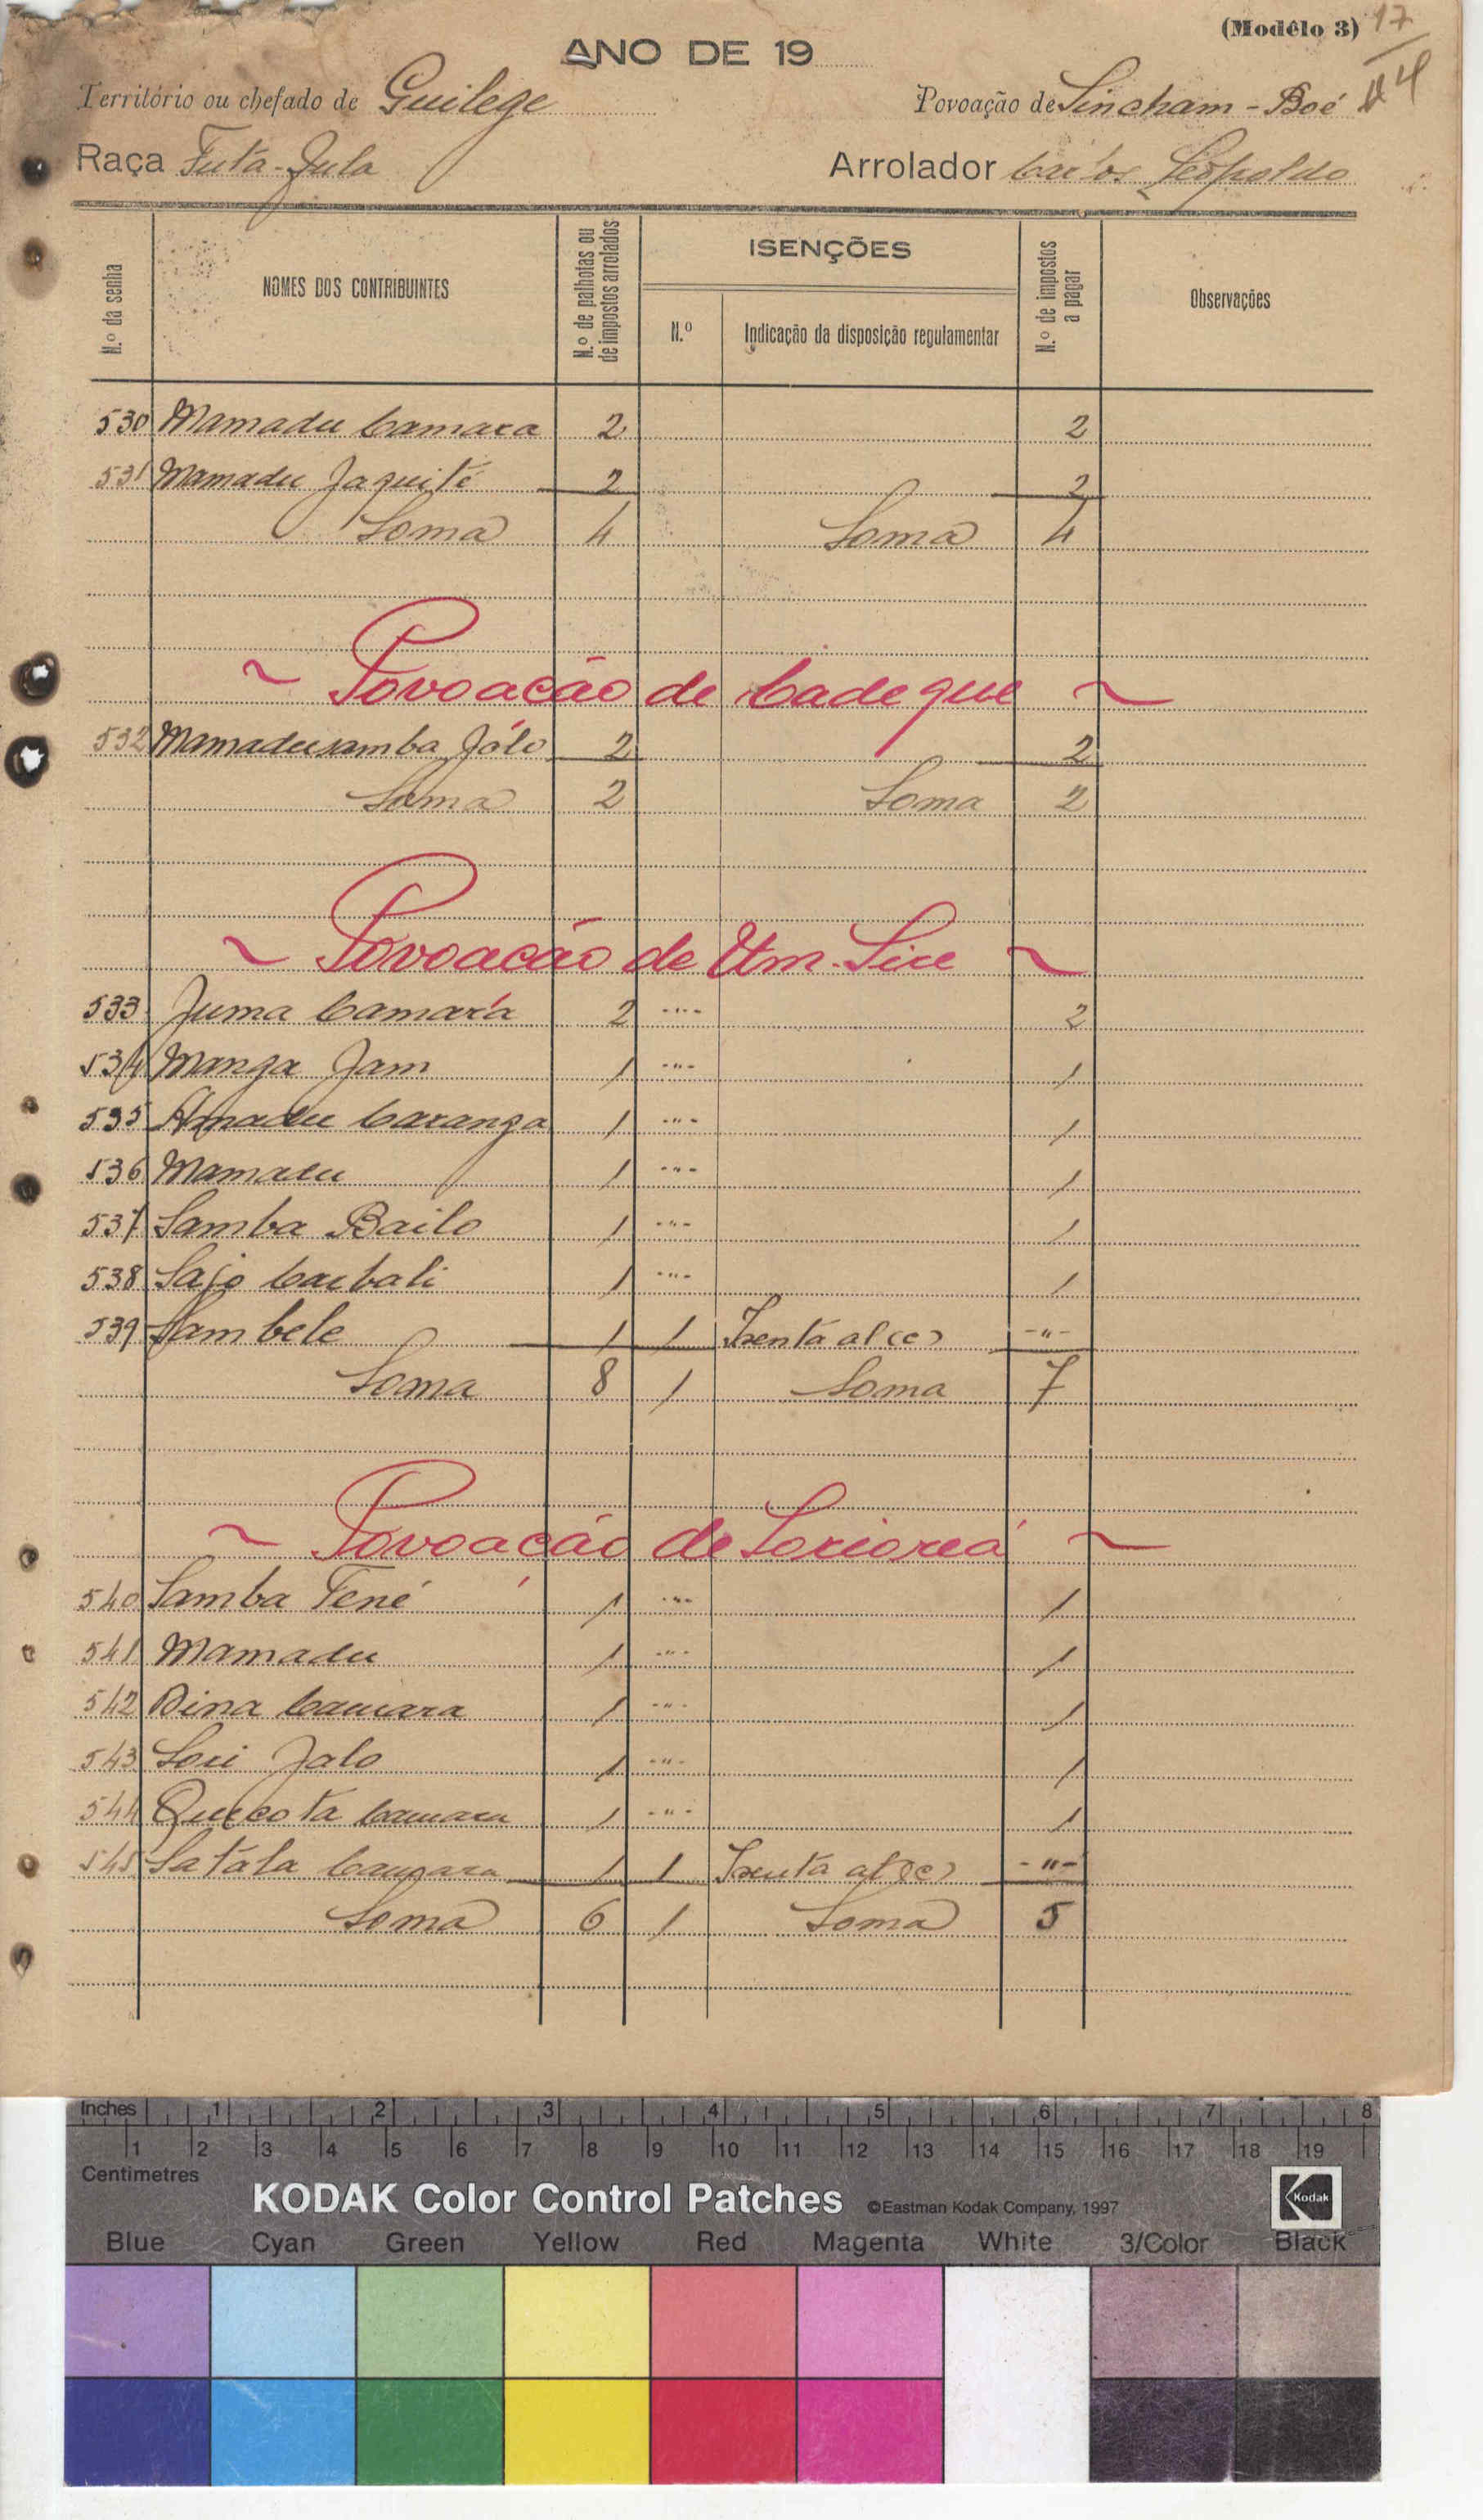 (Modêlo 3) 17
ANO DE 19
Território ou chefado de Guilege Povoação de Sincham-Boé
Raça Futa-Jula Arrolador Carlos Leopoldo
N.º da senha NOMES DOS CONTRIBUINTES N.º de palhotas ou de impostos arrolados ISENÇÕES N.º Indicação da disposição regulamentar N.º de impostos a pagar Observações
530 Mamadu Camara 2 2
531 Mamadu Jaquité 2 2
Soma 4 Soma 4
~ Povoacão de Cadeque ~
532 Mamadusamba Jálo 2 2
Soma 2 Soma 2
~ Povoacão de ~
533 Juma Camará 2 -"- 2
534 Manga Jam 1 -"- 1
535 Amadu Caranga 1 -"- 1
536 Mamadu 1 -"- 1
537 Samba Bailo 1 -"- 1
538 Sajo 1 -"- 1
539 Sambele 1 1 Isenta al(c) -"-
Soma 8 1 Soma 7
~ Povoacão de ~
540 Samba Tené 1 -"- 1
541 Mamadu 1 -"- 1
542 Dina Camara 1 -"- 1
543 Sori Jalo 1 -"- 1
544 Quecota Camara 1 -"- 1
545 Satála Camara 1 1 Isenta al(c) -"-
Soma 6 1 Soma 5
Inches 1 2 3 4 5 6 7 8
1 2 3 4 5 6 7 8 9 10 11 12 13 14 15 16 17 18 19
Centimetres
KODAK Color Control Patches ©Eastman Kodak Company, 1997 Kodak
Blue Cyan Green Yellow Red Magenta White 3/Color Black